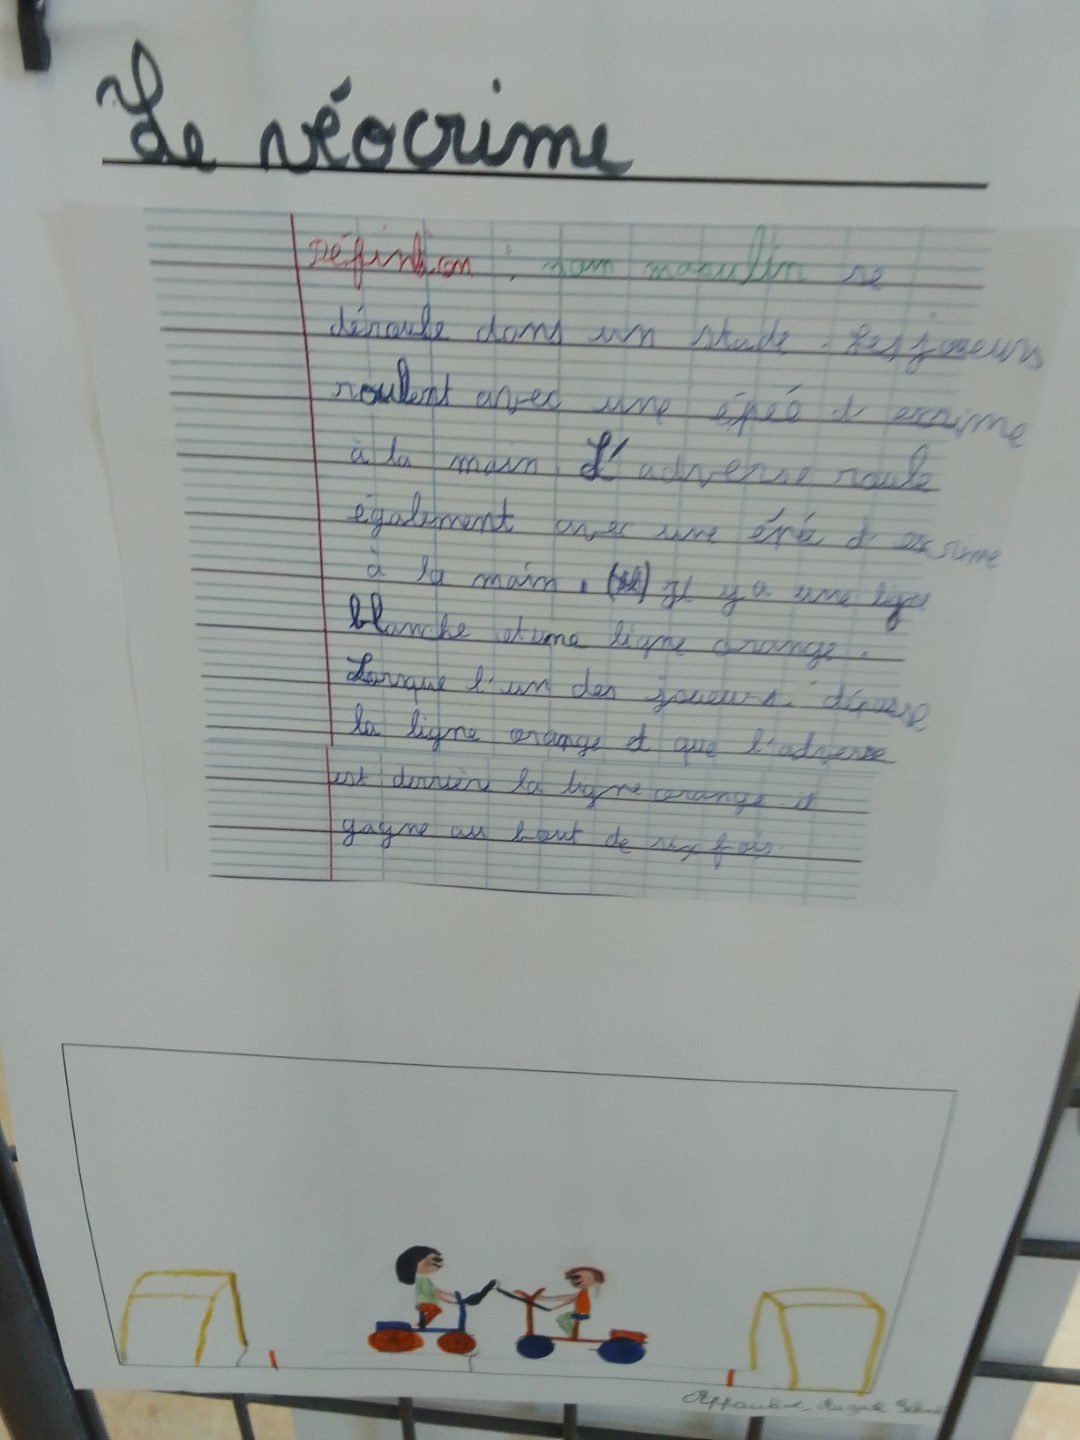 Le véocrime
Définition : nom masculin se
déroule dans un stade. Les joueurs
roulent avec une épéé d'escrime
à la main. L'adverse roule
également avec une épé d'escrime
à la main. Il y a une ligne
blanche et une ligne orange.
Lorsque l'un des joueurs dépasse
la ligne orange et que l'adverse
est derrière la ligne orange il
gagne au bout de six fois